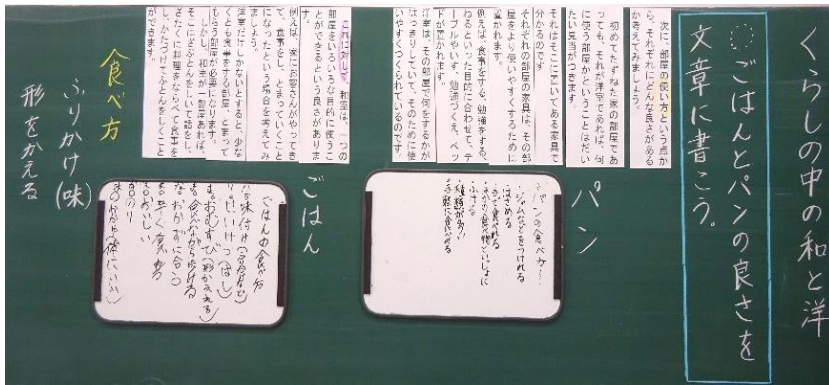 くらしの中の和と洋
ごはんとパンの良さを
文章に書こう。
次に、部屋の使い方という点か
ら、それぞれにどんな良さがある
か考えてみましょう。
初めてたずねた家の部屋であ
っても、それが洋室であれば、何
に使う部屋かということはだい
たい見当がつきます。
それはそこに置いてある家具で
分かるのです。
それぞれの部屋の家具は、その部
屋をより使いやすくするために
置かれます。
例えば、食事をする、勉強をする、
ねるといった目的に合わせて、テ
ーブルやいす、勉強づくえ、ベッ
ドが置かれます。
洋室は、その部屋で何をするかが
はっきりしていて、そのために使
いやすくつくられているのです。
これに対して、和室は、一つの
部屋をいろいろな目的に使うこ
とができるという良さがありま
す。
例えば、家にお客さんがやってき
て、食事をし、とまっていくこと
になったという場合を考えてみ
ましょう。
洋室だけしかないとすると、少な
くとも食事をする部屋、とまって
もらう部屋が必要になります。
しかし、和室が一部屋あれば、
そこにざぶとんをしいて話をし、
ざたくに料理をならべて食事を
し、かたづけてふとんをしくこと
ができます。
パン
パンの食べ方
ジャムなどをつけれる
はさめる
手で食べれる
ほかの食べ物といっしょに
種類が多い
手軽に食べれる
ごはん
ごはんの食べ方
味付け
おむすび
食べながら歩ける
おかずに合う
早く食べれる
おいしい
食べ方
ふりかけ(味)
形をかえる